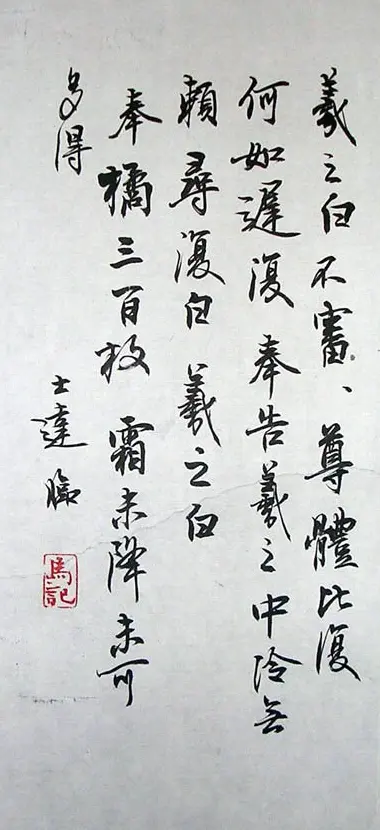 羲之白不審、尊體比復
何如遲復奉告羲之中冷無
賴尋復白羲之白
奉橘三百枚霜未降未可
多得
士達臨
馬記